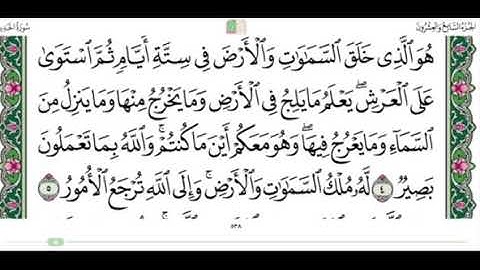 الجزء السابع والعشرون
سورة الحديد
هُوَ ٱلَّذِى خَلَقَ ٱلسَّمَٰوَٰتِ وَٱلْأَرْضَ فِى سِتَّةِ أَيَّامٍ ثُمَّ ٱسْتَوَىٰ
عَلَى ٱلْعَرْشِ ۖ يَعْلَمُ مَا يَلِجُ فِى ٱلْأَرْضِ وَمَا يَخْرُجُ مِنْهَا وَمَا يَنزِلُ مِنَ
ٱلسَّمَآءِ وَمَا يَعْرُجُ فِيهَا ۖ وَهُوَ مَعَكُمْ أَيْنَ مَا كُنتُمْ ۚ وَٱللَّهُ بِمَا تَعْمَلُونَ
بَصِيرٌ ٤ لَّهُۥ مُلْكُ ٱلسَّمَٰوَٰتِ وَٱلْأَرْضِ ۚ وَإِلَى ٱللَّهِ تُرْجَعُ ٱلْأُمُورُ ٥
٥٣٨